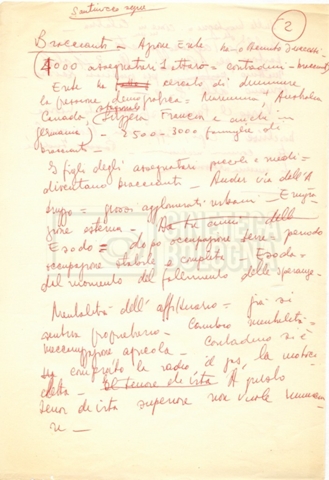 2
Braccianti - Azione Ente
4000 assegnatari 1 ettaro = contadini - braccianti
Ente ha cercato di diminuire
la pressione demografica = Maremma, Australia
Canada, Svizzera Francia e anche in
Germania) - 2500-3000 famiglie di
braccianti -
I figli degli assegnatari piccoli e medi =
diventano braccianti - Andar via dall'A
= grossi agglomerati urbani - Emigra
zione esterna - Da tre anni dello
Esodo = dopo occupazione terre periodo
occupazione stabile e completa. Esodo =
dal momento del fallimento delle speranze -
Mentalità dell'affittuario = già si
sentiva proprietario - Cambio mentalità -
meccanizzazione agricola - Contadino si è
comperato la radio il gas, la motoci
cletta - Il tenore di vita A questo
tenor di vita superiore non vuole rinunzia
re -